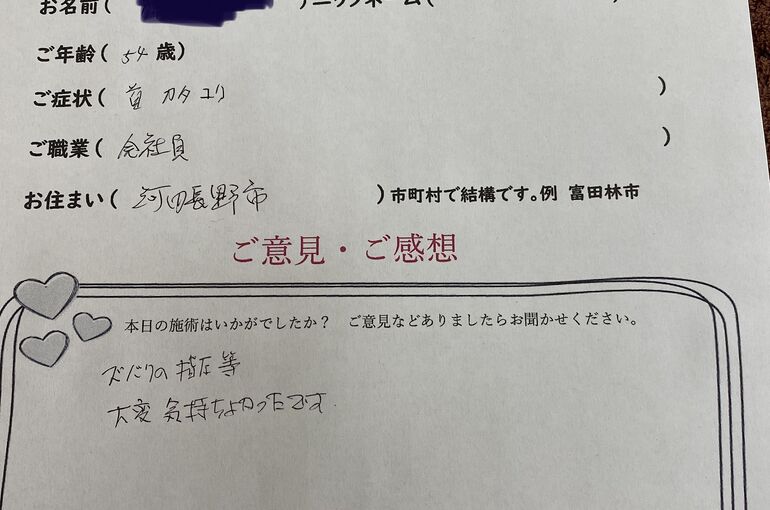 お名前( )ニックネーム(
ご年齢( 54 歳)
ご症状( 首 カタ コリ )
ご職業( 会社員 )
お住まい( 河内長野市 )市町村で結構です。例 富田林市
ご意見・ご感想
本日の施術はいかがでしたか? ご意見などありましたらお聞かせください。
ズバリの指圧等
大変気持ちよかったです.